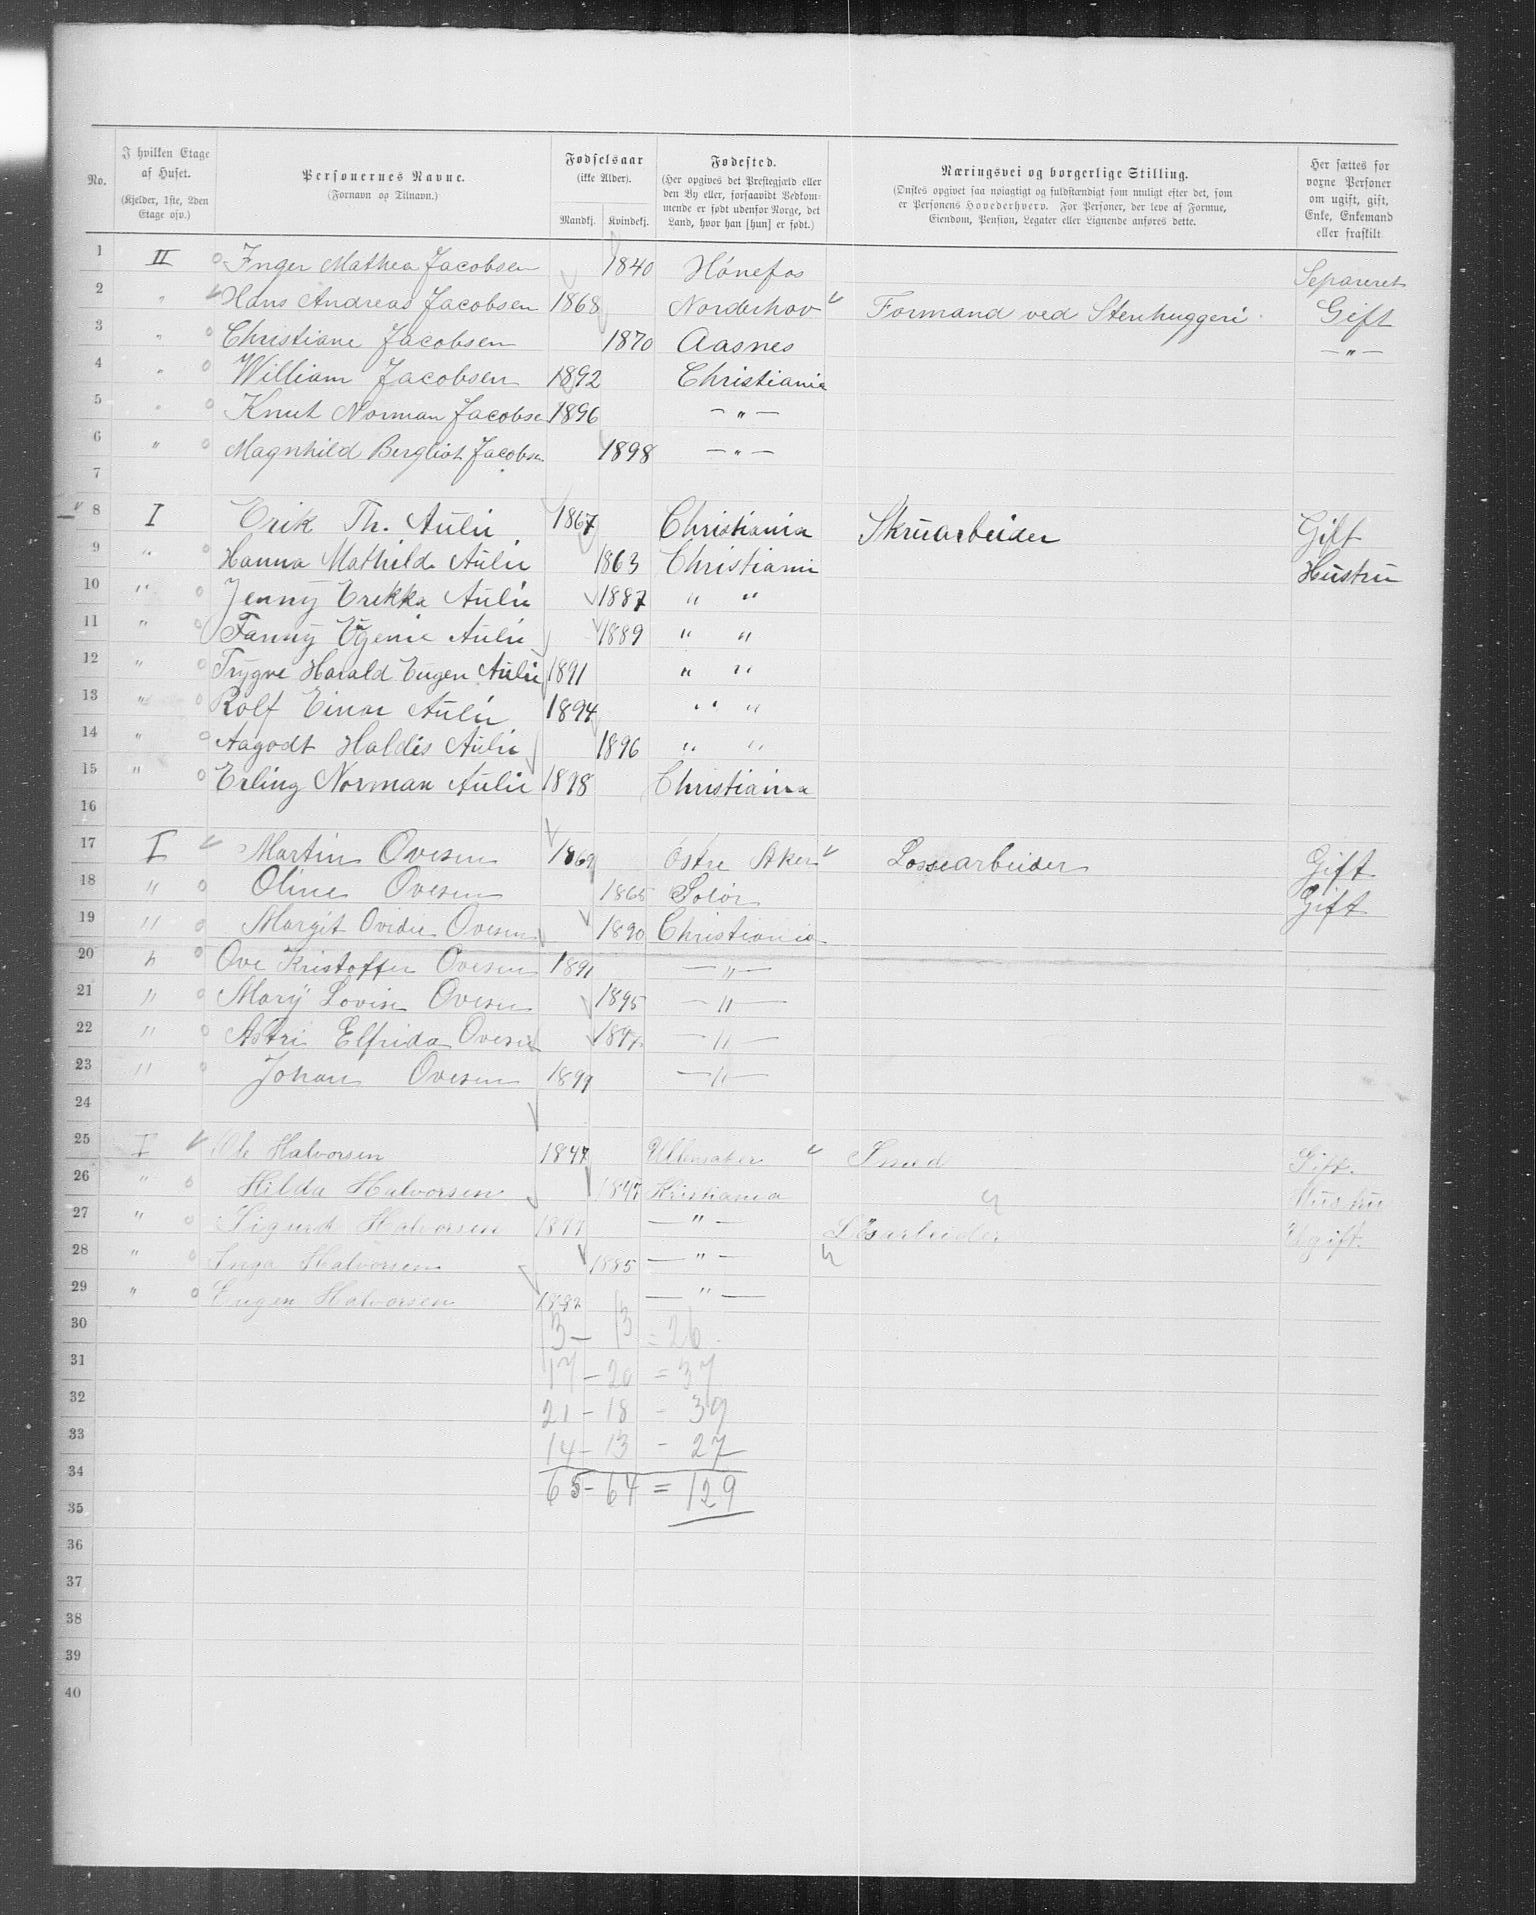 No. I hvilken Etage af Huset. (Kjelder, 1ste, 2den Etage osv.) Personernes Navne. (Fornavn og Tilnavn.) Fødselsaar (ikke Alder). Mandkj. Kvindekj. Fødested. (Her opgives det Prestegjæld eller den By eller, forsaavidt Vedkommende er født udenfor Norge, det Land, hvor han [hun] er født.) Næringsvei og borgerlige Stilling. (Ønskes opgivet saa nøiagtigt og fuldstændigt som muligt efter det, som er Personens Hovederhverv. For Personer, der leve af Formue, Eiendom, Pension, Legater eller Lignende anføres dette. Her sættes for voxne Personer om ugift, gift, Enke, Enkemand eller fraskilt
1 II Inger Mathea Jacobsen 1840 Hønefos Separeret
2 " Hans Andreas Jacobsen 1868 Norderhov Formand ved Stenhuggeri Gift
3 " Christiane Jacobsen 1870 Aasnes — " —
4 " William Jacobsen 1892 Christiania
5 " Knut Norman Jacobse 1896 — " —
6 " Magnhild Bergliot Jacobsen 1898 — " —
7
8 I Erik Th. Aulie 1867 Christiania Skruarbeider Gift
9 " Hanna Mathilde Aulie 1863 Christiania Hustru
10 " Jenny Erikka Aulie 1887 " "
11 " Fanny Eugenie Aulie 1889 " "
12 " Trygve Harald Eugen Aulie 1891 " "
13 " Rolf Einar Aulie 1894 " "
14 " Aagodt Haldis Aulie 1896 " "
15 " Erling Norman Aulie 1898 Christiania
16
17 I Martin Ovesen 1869 Østre Aker Lossearbeider Gift
18 " Oline Ovesen 1865 Solør Gift
19 " Margit Ovidie Ovesen 1890 Christiania
20 " Ove Kristoffer Ovesen 1891 — " —
21 " Mary Lovise Ovesen 1895 — " —
22 " Astri Elfrida Ovesen 1897 — " —
23 " Johan Ovesen 1899 — " —
24
25 I Ole Halvorsen 1847 Ullensaker Smed Gift.
26 " Hilda Halvorsen 1847 Kristiania Hustru
27 " Sigurd Halvorsen 1877 — " — Løsarbeider Ugift.
28 " Inga Halvorsen 1885 — " —
29 " Eugen Halvorsen 1892 — " —
30 13 — 13 = 26
31 17 — 20 = 37
32 21 — 18 - 39
33 14 — 13 - 27
34 65 — 64 = 129
35
36
37
38
39
40